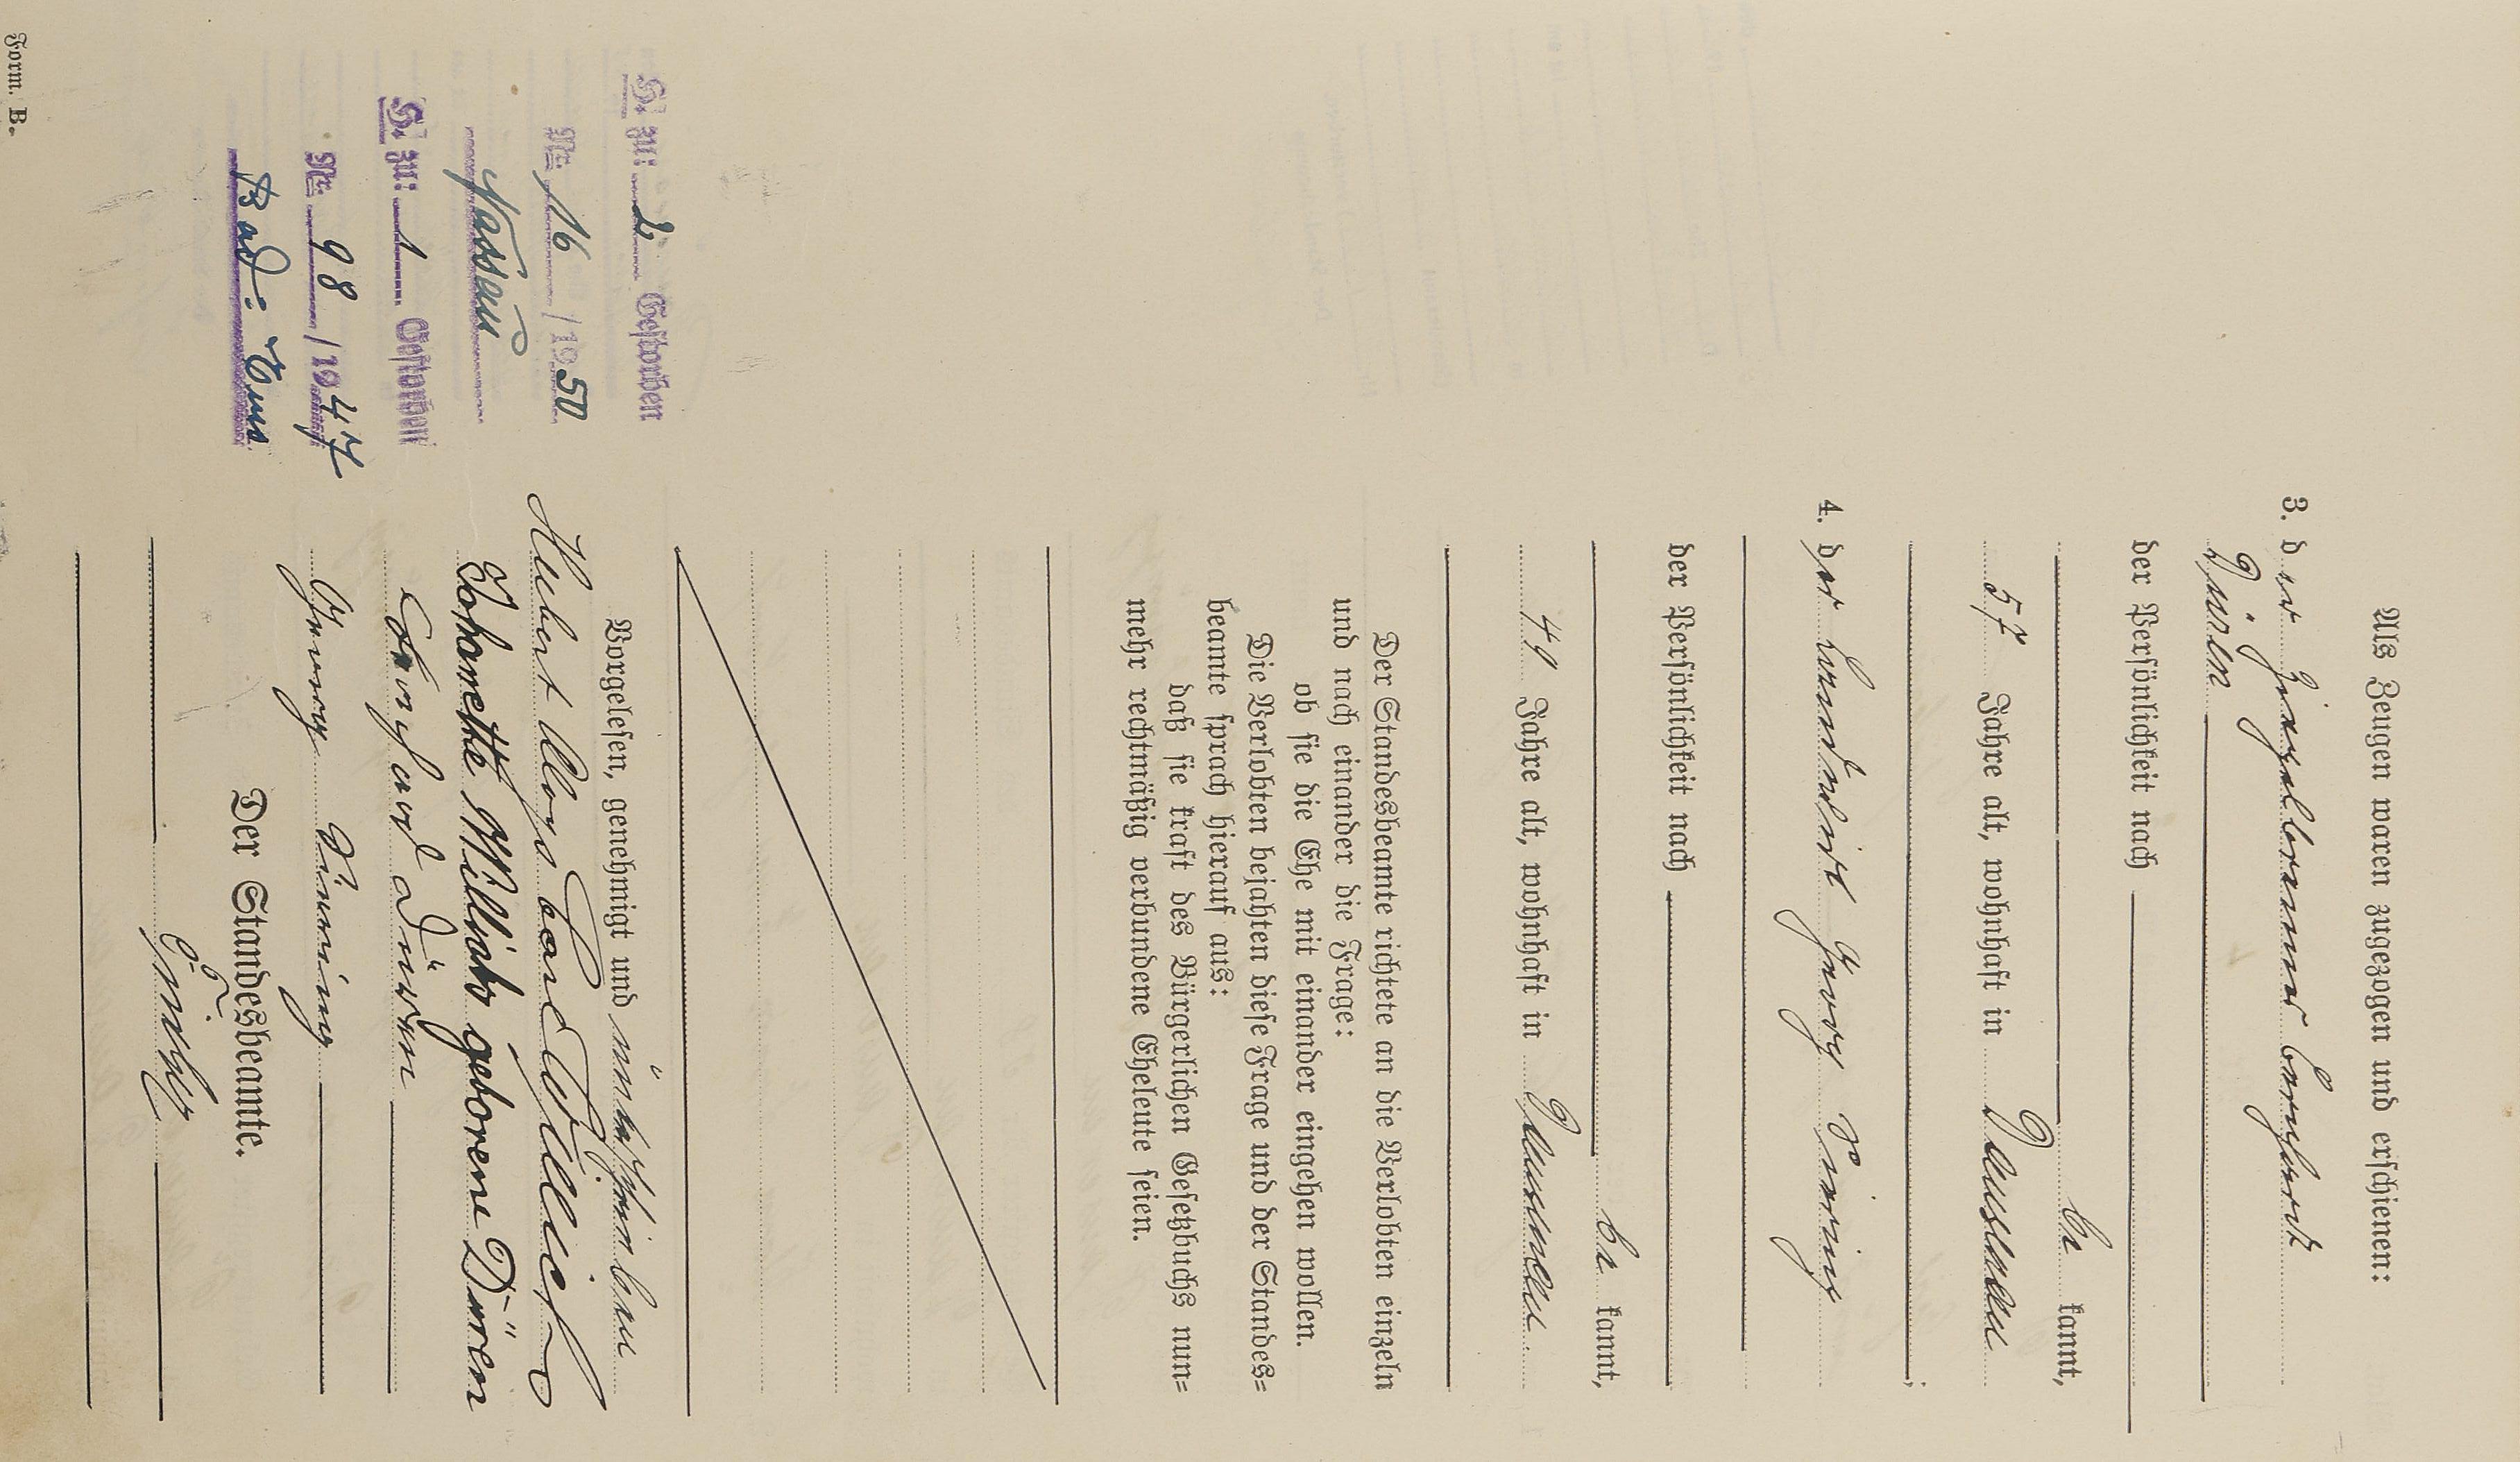 Als Zeugen waren zugezogen und erschienen:
3. der Ziegelbrenner Bernhard
Düren
der Persönlichkeit nach
be kannt,
57 Jahre alt, wohnhaft in Dausenau
;
4. der Landwirt Georg
der Persönlichkeit nach
be kannt,
49 Jahre alt, wohnhaft in Dausenau.
Der Standesbeamte richtete an die Verlobten einzeln
und nach einander die Frage:
ob sie die Ehe mit einander eingehen wollen.
Die Verlobten bejahten diese Frage und der Standes=
beamte sprach hierauf aus:
daß sie kraft des Bürgerlichen Gesetzbuchs nun=
mehr rechtmäßig verbundene Eheleute seien.
Vorgelesen, genehmigt und unterschrieben
Hubert Aloys Willich
Johanette Willich geborene Düren
Bernhard Düren
Georg
Der Standesbeamte.
H. zu: 2 Gestorben
Nr. 16 / 1950
Nassau
H. zu: 1 Gestorben
Nr. 98 / 1947
Bad: Ems
Form. B.